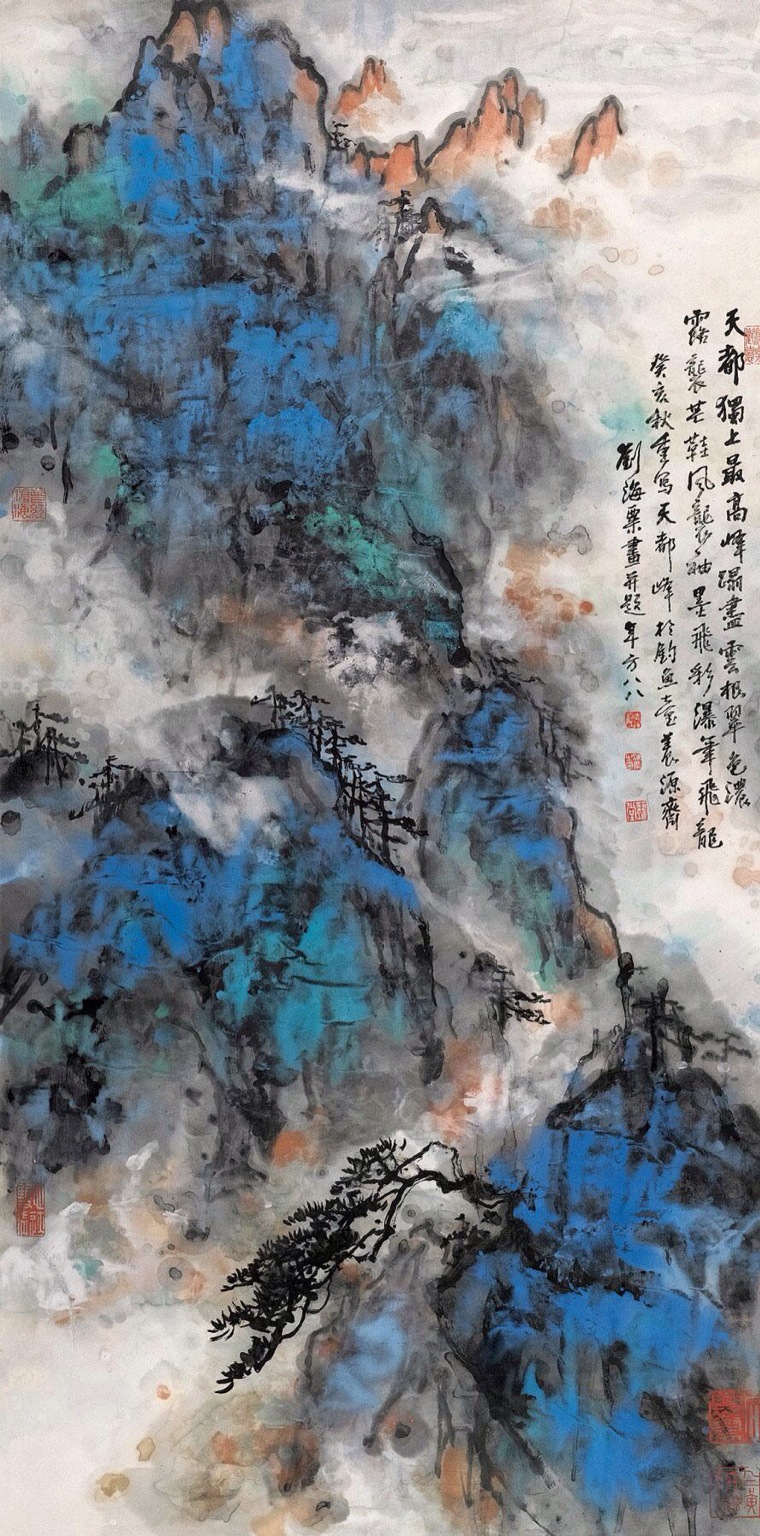 天都獨上最高峰蹋盡雲根翠色濃
露襲芒鞋風襲袖墨飛彩瀑筆飛龍
癸亥秋重寫天都峰於釣魚臺養源齋
劉海粟畫并題年方八八